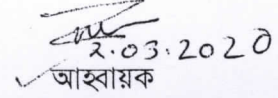 2.03.2020
আহবায়ক